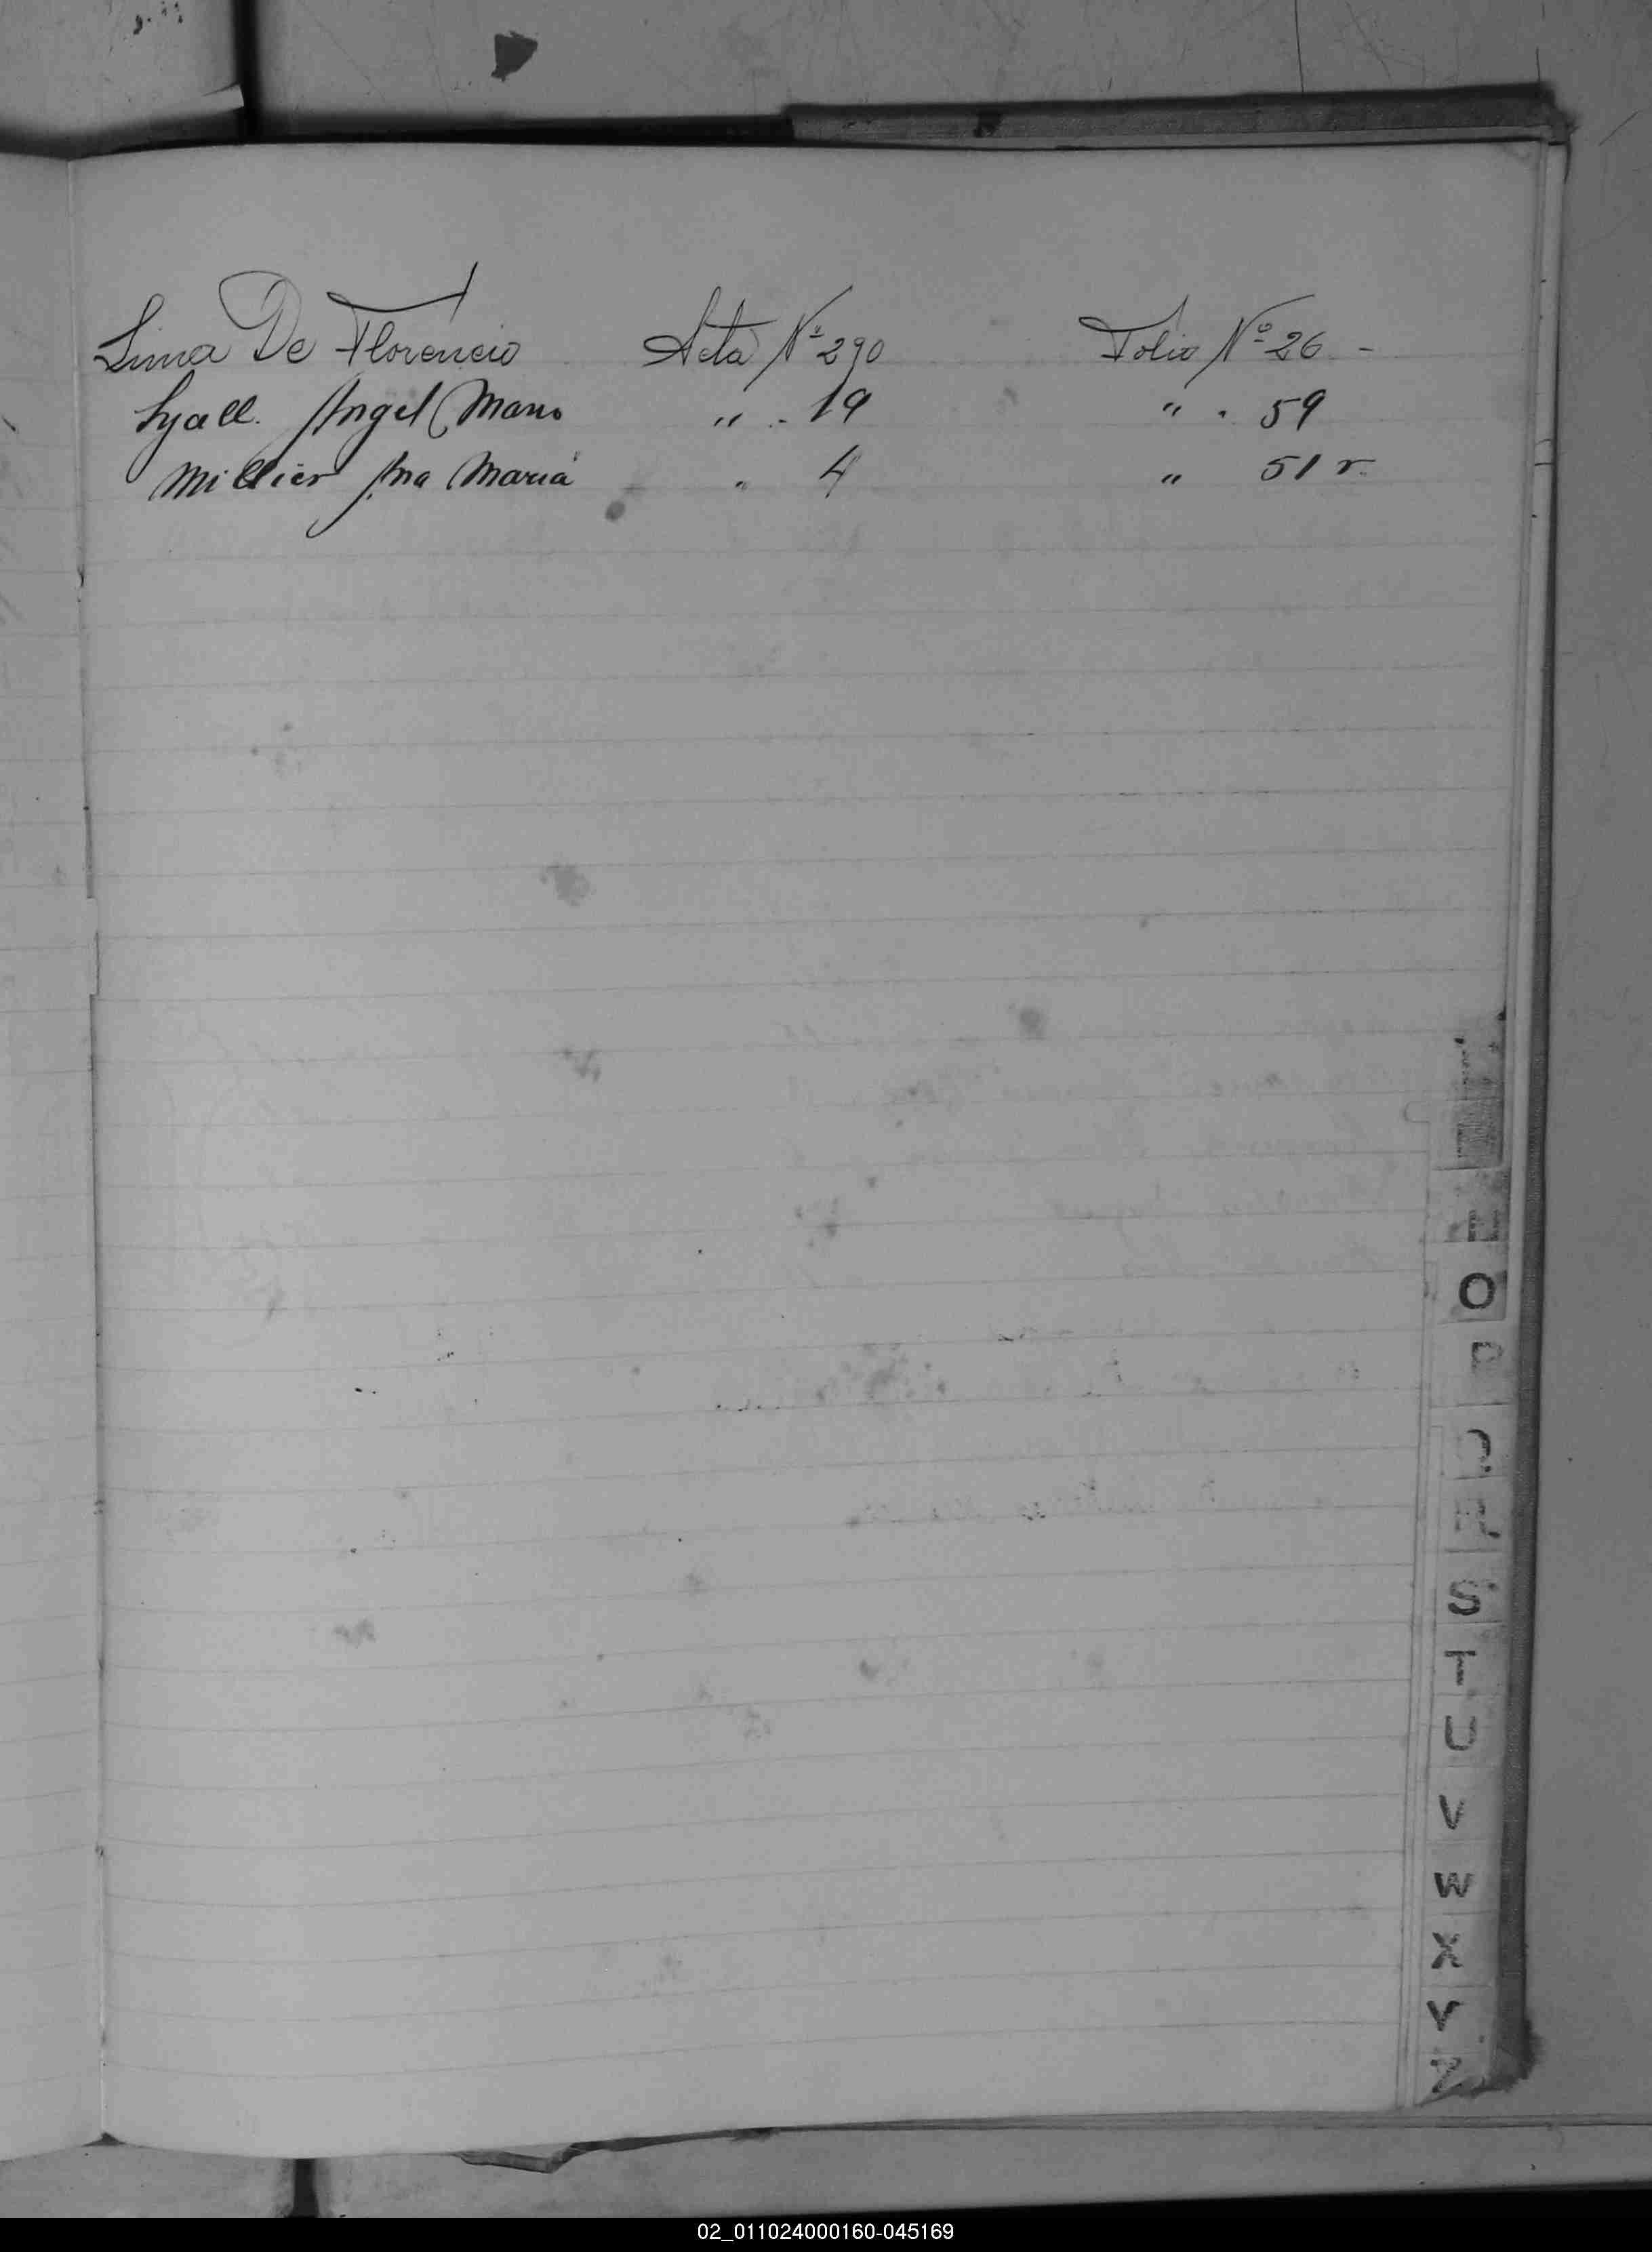 Lima De Florencio Acta Nº 290 Folio Nº 26 -
Lyall. Angel Mano " . 19 " . 59
Millier Ana Maria " 4 " 51 r.
O
P
Q
R
S
T
U
V
W
X
Y
Z
02_011024000160-045169